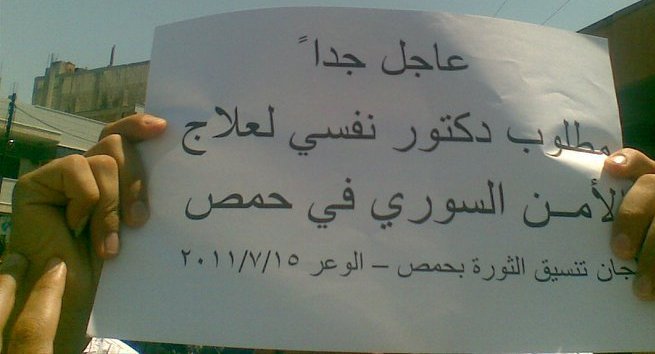 عاجل جداً
مطلوب دكتور نفسي لعلاج
الأمـن السوري في حمص
لجان تنسيق الثورة بحمص – الوعر ٢٠١١/٧/١٥